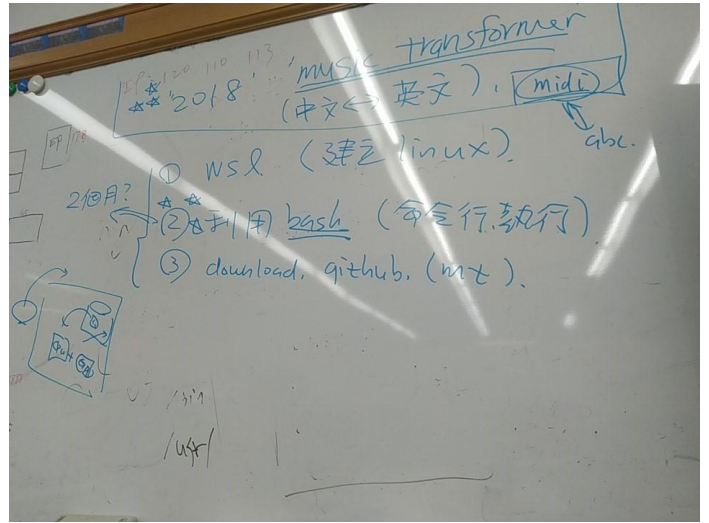 IP: 120 110 113
'2018' 'music transformer
(中文⇔英文). (midi)
abc.
① wsl (建立linux).
2個月?
② 利用 bash (命令行.執行)
③ download. github. (mt).
/bin
/usr/